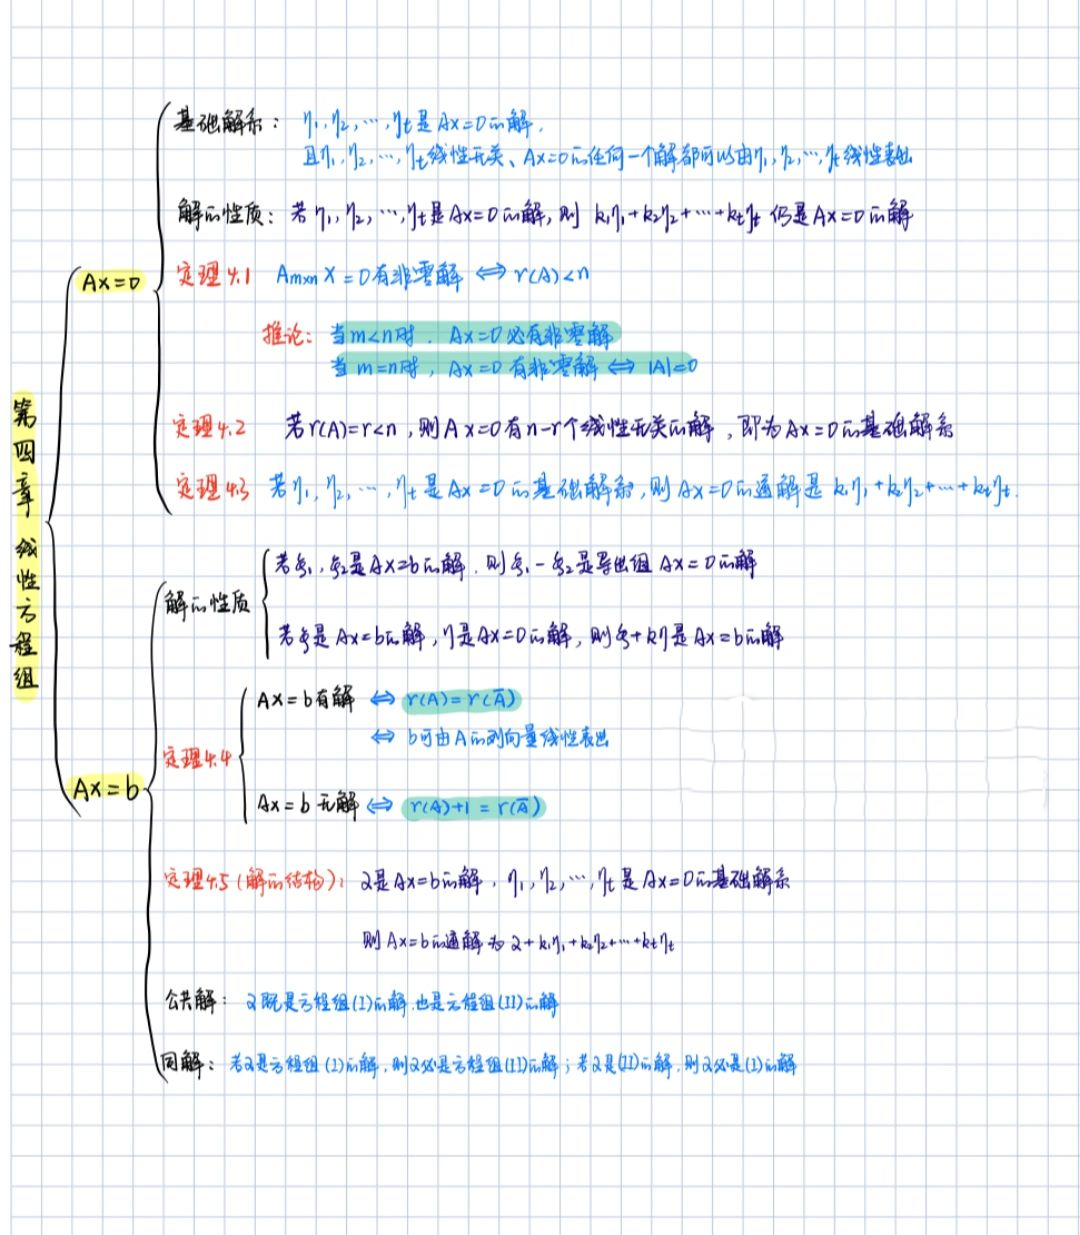 第四章 线性方程组
Ax=0
基础解系： η₁,η₂,…,ηt是Ax=0的解,
且η₁,η₂,…,ηt线性无关、Ax=0的任何一个解都可以由η₁,η₂,…,ηt线性表出
解的性质：若η₁,η₂,…,ηt是Ax=0的解,则 k₁η₁+k₂η₂+…+ktηt 仍是Ax=0的解
定理4.1 Am×n X=0有非零解 ⇔ r(A)<n
推论：当m<n时. Ax=0必有非零解
当m=n时, Ax=0有非零解 ⇔ |A|=0
定理4.2 若r(A)=r<n,则Ax=0有n-r个线性无关的解,即为Ax=0的基础解系
定理4.3 若η₁,η₂,…,ηt是Ax=0的基础解系,则Ax=0的通解是 k₁η₁+k₂η₂+…+ktηt.
Ax=b
解的性质
若ξ₁,ξ₂是Ax=b的解.则ξ₁-ξ₂是导出组 Ax=0的解
若ξ是Ax=b的解,η是Ax=0的解,则ξ+kη是Ax=b的解
定理4.4
Ax=b有解 ⇔ r(A)=r(Ā)
⇔ b可由A的列向量线性表出
Ax=b无解 ⇔ r(A)+1=r(Ā)
定理4.5(解的结构)：α是Ax=b的解,η₁,η₂,…,ηt是Ax=0的基础解系
则Ax=b的通解为α+k₁η₁+k₂η₂+…+ktηt
公共解：α既是方程组(I)的解.也是方程组(II)的解
同解：若α是方程组(I)的解.则α必是方程组(II)的解;若α是(II)的解.则α必是(I)的解